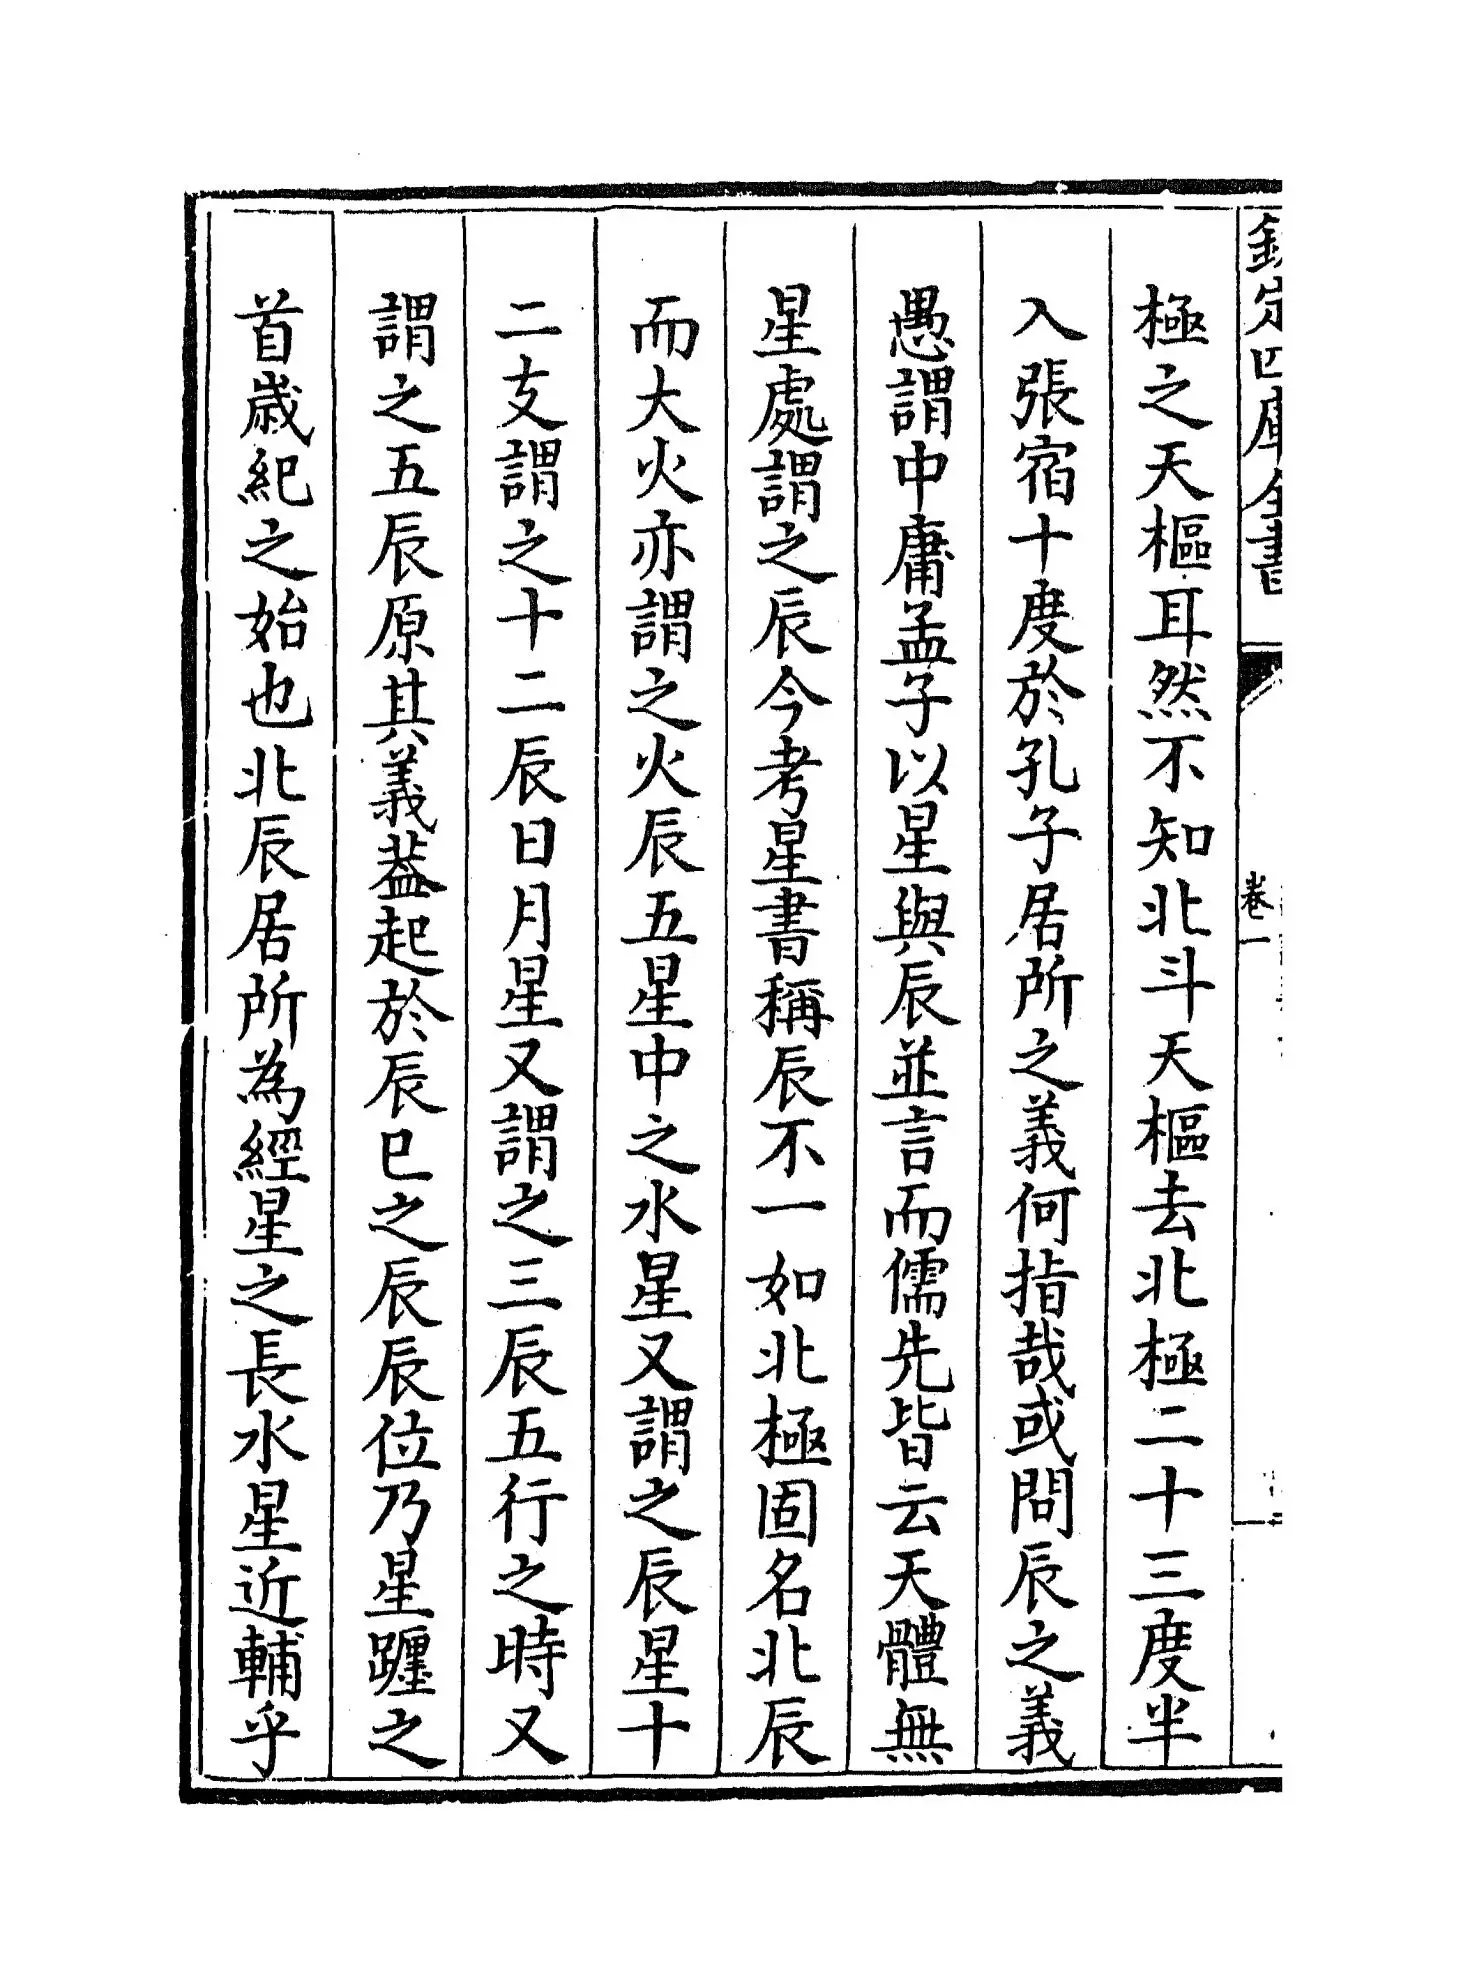 欽定四庫全書
卷一
極之天樞耳然不知北斗天樞去北極二十三度半
入張宿十度於孔子居所之義何指哉或問辰之義
愚謂中庸孟子以星與辰並言而儒先皆云天體無
星處謂之辰今考星書稱辰不一如北極固名北辰
而大火亦謂之火辰五星中之水星又謂之辰星十
二支謂之十二辰日月星又謂之三辰五行之時又
謂之五辰原其義葢起於辰巳之辰辰位乃星躔之
首歲紀之始也北辰居所為經星之長水星近輔乎